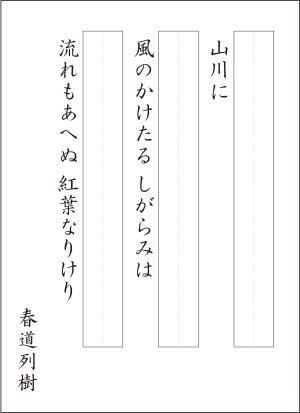 山川に
風のかけたる しがらみは
流れもあへぬ 紅葉なりけり
春道列樹